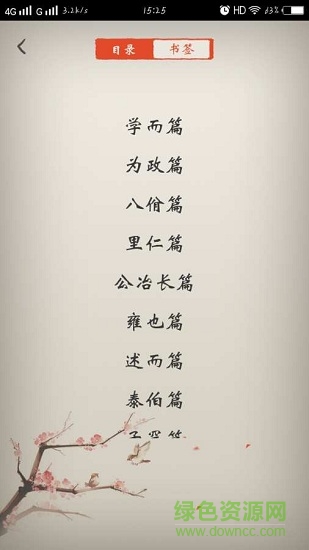 4G G 3.2k/s 15:25 HD 63%
目录 书签
学而篇
为政篇
八佾篇
里仁篇
公冶长篇
雍也篇
述而篇
泰伯篇
绿色资源网
www.downcc.com